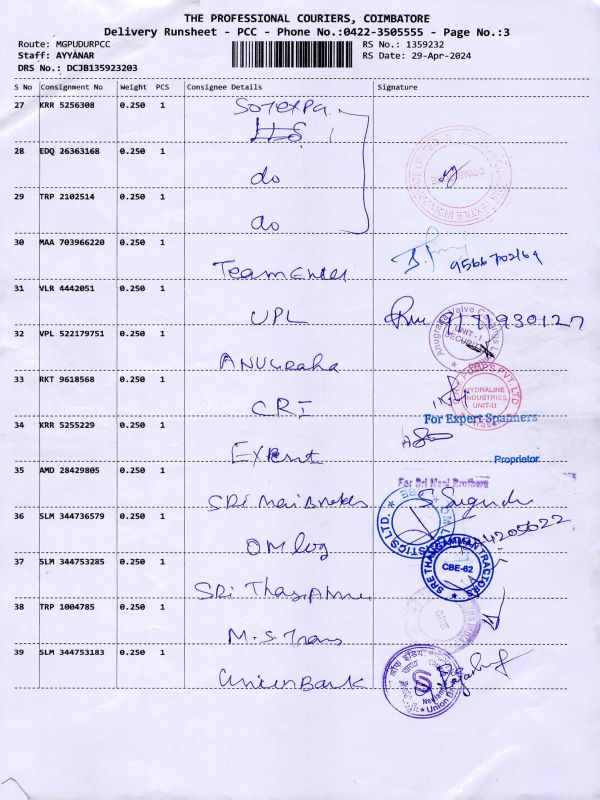 THE PROFESSIONAL COURIERS, COIMBATORE
Delivery Runsheet - PCC - Phone No.:0422-3505555 - Page No.:3
Route: MGPUDURPCC RS No.: 1359232
Staff: AYYANAR RS Date: 29-Apr-2024
DRS No.: DCJB135923203
S No Consignment No Weight PCS Consignee Details Signature
27 KRR 5256308 0.250 1
28 EDQ 26363168 0.250 1 do
29 TRP 2102514 0.250 1 do
30 MAA 703966220 0.250 1
9566702169
31 VLR 4442051 0.250 1 UPL
9171930127
32 VPL 522179751 0.250 1 ANUGRaha
Anugraha Valve
UNIT-I
SECURITY
33 RKT 9618568 0.250 1 CRI
PUMPS PVT. LTD
HYDRALINE
INDUSTRIES
UNIT-II
34 KRR 5255229 0.250 1 Expert
For Expert Spanners
Proprietor
35 AMD 28429805 0.250 1
For Sri Nool Brothers
36 SLM 344736579 0.250 1 OM log
37 SLM 344753285 0.250 1
SRE THANGAMMAN TRACTORS
CBE-62
38 TRP 1004785 0.250 1 M.S. Trans
39 SLM 344753183 0.250 1 Union Bank